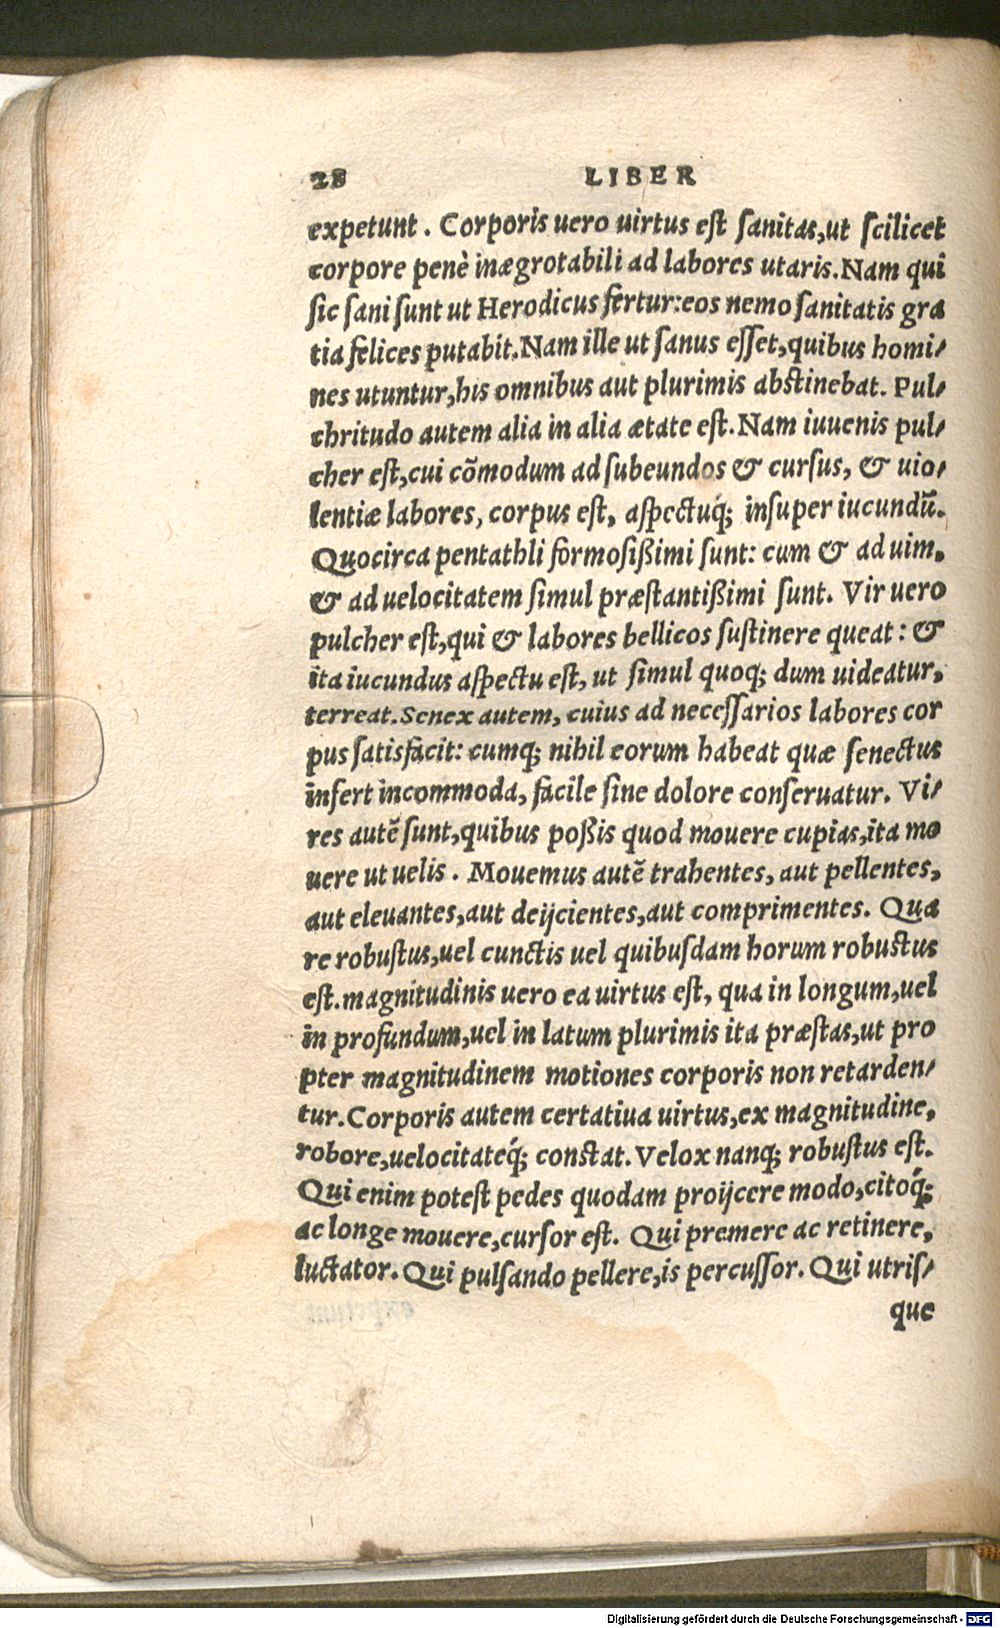 28 LIBER
expetunt. Corporis uero uirtus est sanitas, ut scilicet
corpore penè inægrotabili ad labores utaris. Nam qui
sic sani sunt ut Herodicus fertur: eos nemo sanitatis gra
tia felices putabit. Nam ille ut sanus esset, quibus homi/
nes utuntur, his omnibus aut plurimis abstinebat. Pul/
chritudo autem alia in alia ætate est. Nam iuuenis pul/
cher est, cui cõmodum ad subeundos & cursus, & uio/
lentiæ labores, corpus est, aspectuq́; insuper iucundũ.
Quocirca pentathli formosißimi sunt: cum & ad uim,
& ad uelocitatem simul præstantißimi sunt. Vir uero
pulcher est, qui & labores bellicos sustinere queat: &
ita iucundus aspectu est, ut simul quoq; dum uideatur,
terreat. Senex autem, cuius ad necessarios labores cor
pus satisfacit: cumq; nihil eorum habeat quæ senectus
infert incommoda, facile sine dolore conseruatur. Vi/
res autẽ sunt, quibus poßis quod mouere cupias, ita mo
uere ut uelis. Mouemus autẽ trahentes, aut pellentes,
aut eleuantes, aut deijcientes, aut comprimentes. Qua
re robustus, uel cunctis uel quibusdam horum robustus
est. magnitudinis uero ea uirtus est, qua in longum, uel
in profundum, uel in latum plurimis ita præstas, ut pro
pter magnitudinem motiones corporis non retarden/
tur. Corporis autem certatiua uirtus, ex magnitudine,
robore, uelocitateq́; constat. Velox nanq; robustus est.
Qui enim potest pedes quodam proijcere modo, citoq́;
ac longe mouere, cursor est. Qui premere ac retinere,
luctator. Qui pulsando pellere, is percussor. Qui utris/
que
Digitalisierung gefördert durch die Deutsche Forschungsgemeinschaft - DFG